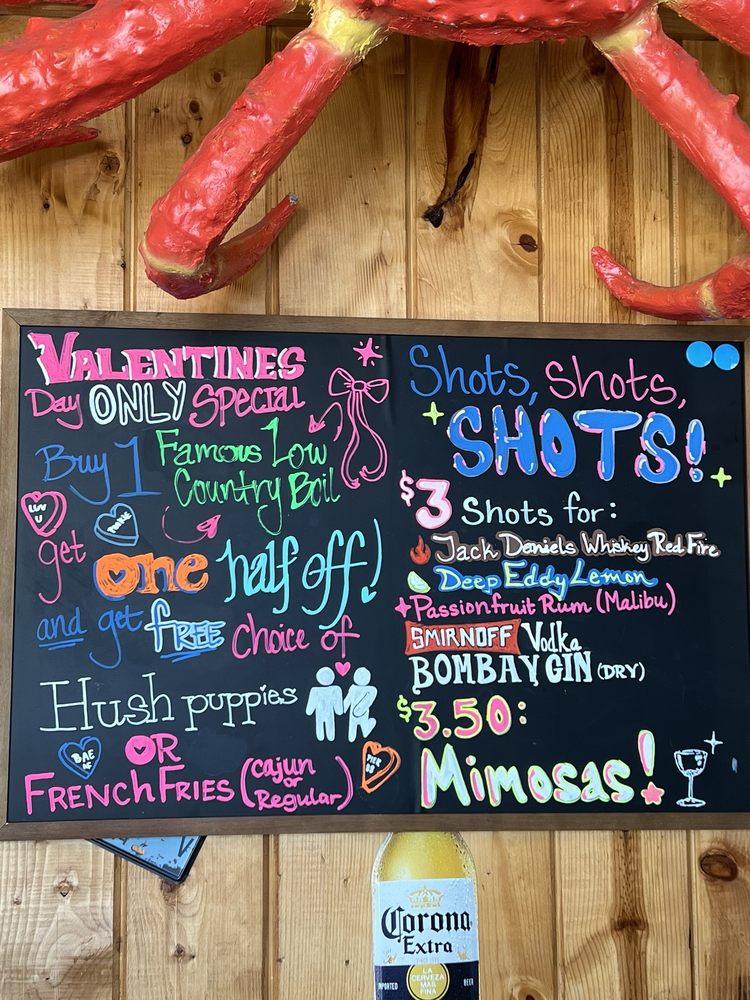 VALENTINES
Day ONLY Special
Buy 1 Famous Low
Country Boil
LUV
U
get one half off!
and get fREE choice of
Hush puppies
BAE
OR
FRENCh FRIES (cajun
or
Regular)
Shots, Shots,
SHOTS!
$3 Shots for:
Jack Daniels Whiskey Red Fire
Deep Eddy Lemon
Passionfruit Rum (Malibu)
SMIRNOFF Vodka
BOMBAY GIN (DRY)
$3.50:
Mimosas!
Corona
Extra
LA
CERVEZA
MAS
FINA
IMPORTED BEER